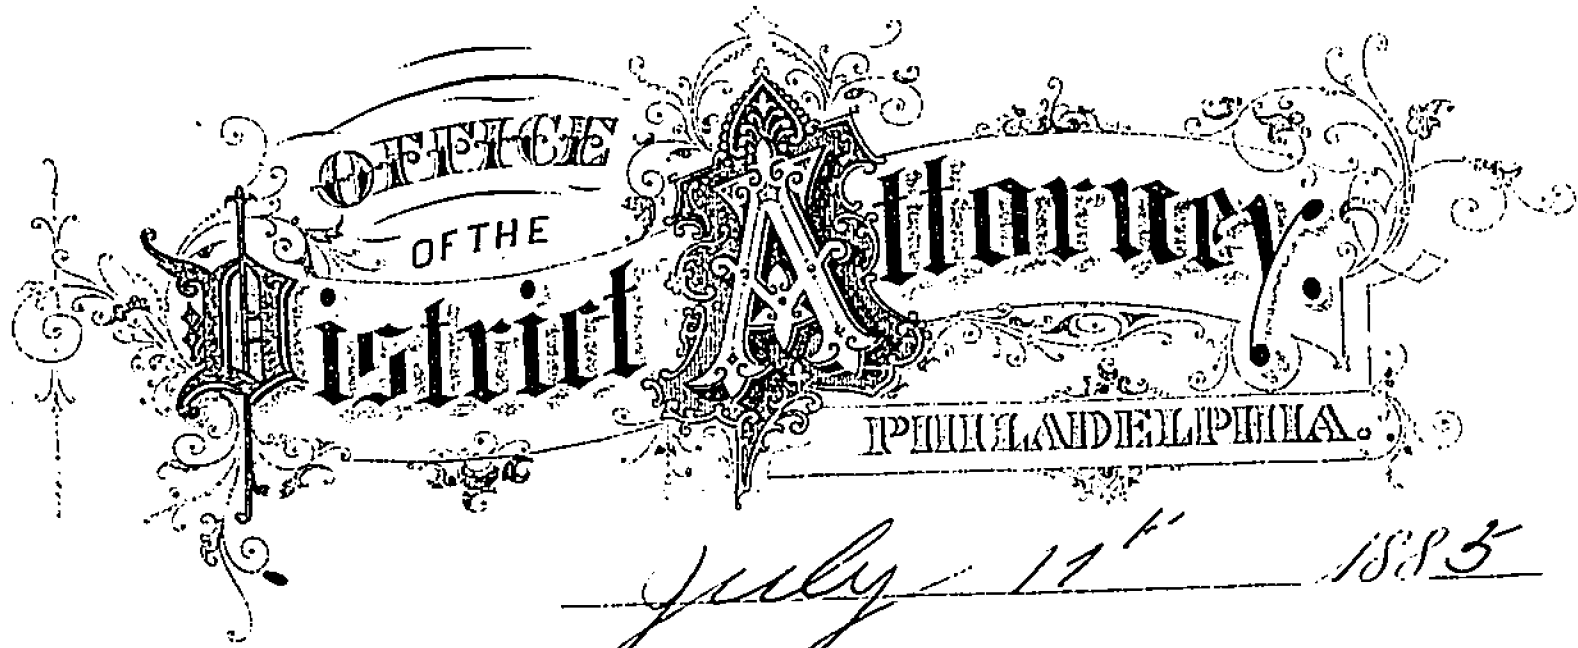 OFFICE
OF THE
District Attorney,
PHILADELPHIA.
July 11th 1885